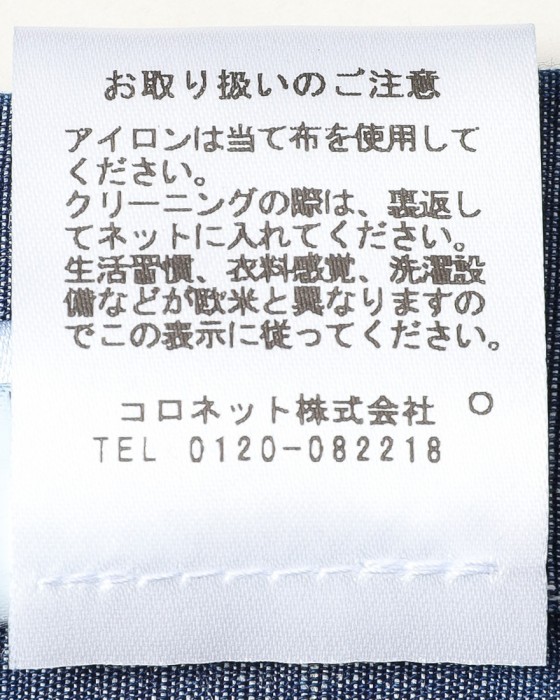 お取り扱いのご注意
アイロンは当て布を使用して
ください。
クリーニングの際は、裏返し
てネットに入れてください。
生活習慣、衣料感覚、洗濯設
備などが欧米と異なりますの
でこの表示に従ってください。
コロネット株式会社 ○
TEL 0120-082218